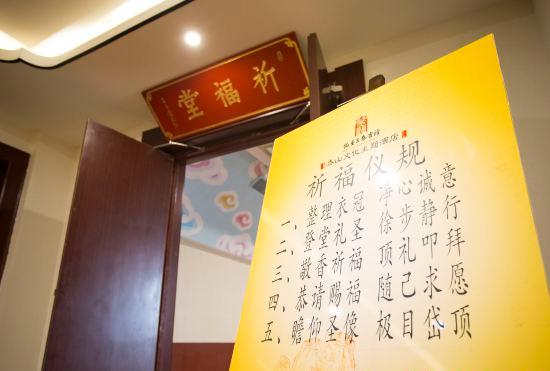 祈福堂
泰山文化主题酒店
祈福仪规
一、整理衣冠 净心诚意
二、登堂礼圣 徐步静行
三、敬香祈福 顶礼叩拜
四、恭请赐福 随己求愿
五、瞻仰圣像 极目岱顶